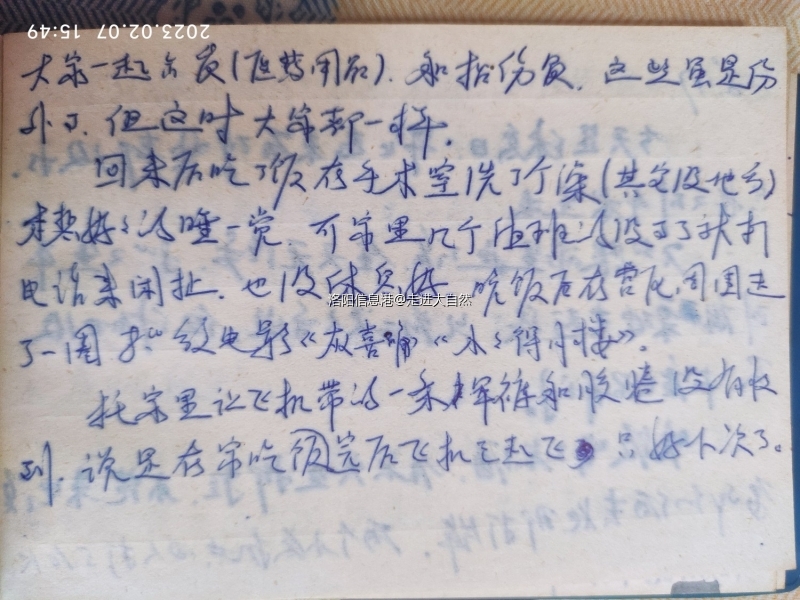 2023.02.07 15:49
大家一起出发(医药用品).和抬伤员.这些虽是份
外了.但这时大家都一样.
回来后吃了饭在手术室洗了个澡(其它没地方)
想好好的睡一觉.可家里几个值班的没事了就打
电话来闲扯.也没休息好 晚饭后在营区周围走
了一圈 晚上放电影《灰喜鹊》《水上得月楼》.
托家里让飞机带的一条军裤和胶卷没有收
到.说是在家吃饭完后飞机已起飞 只好下次了.
洛阳信息港@走进大自然